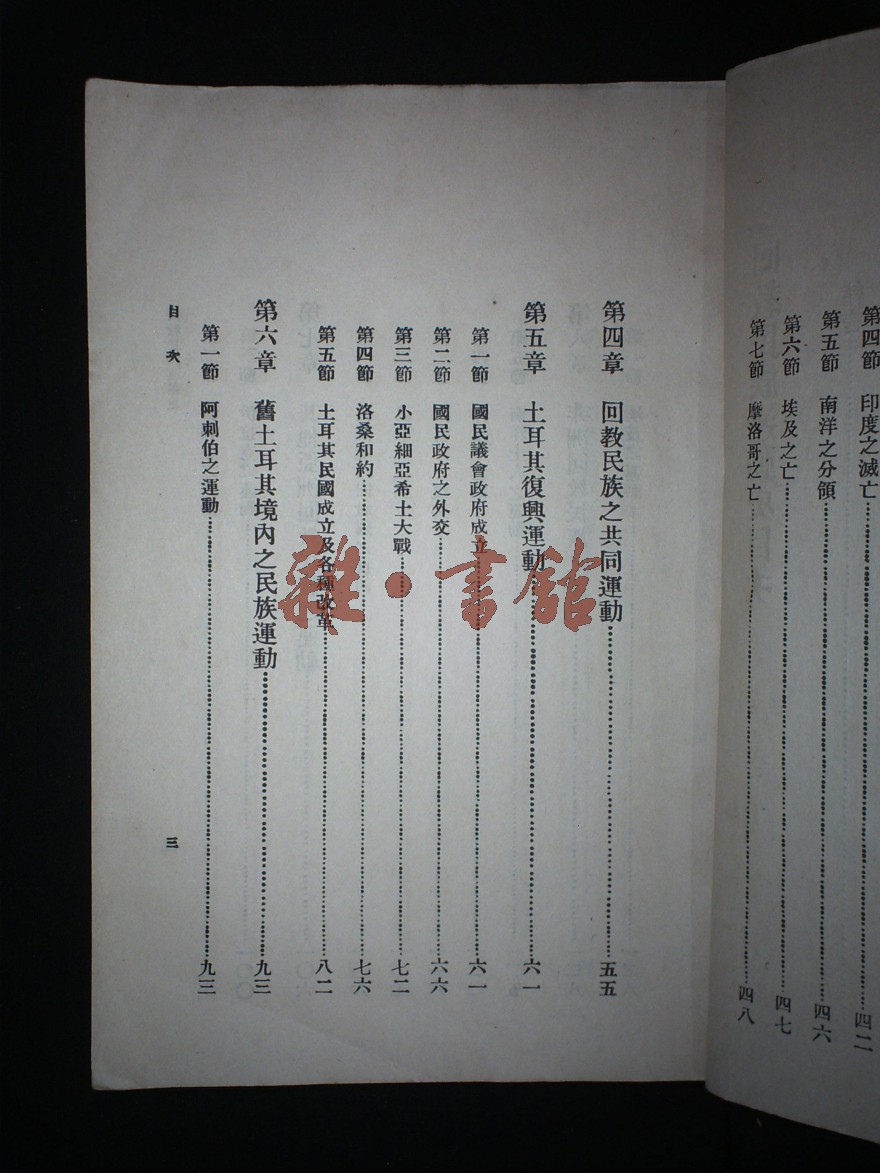 第四節　印度之滅亡……四二
第五節　南洋之分領……四六
第六節　埃及之亡……四七
第七節　摩洛哥之亡……四八
第四章　回教民族之共同運動……五五
第五章　土耳其復興運動……六一
第一節　國民議會政府成立……六一
第二節　國民政府之外交……六六
第三節　小亞細亞希土大戰……七二
第四節　洛桑和約……七六
第五節　土耳其民國成立及各種改革……八二
第六章　舊土耳其境內之民族運動……九三
第一節　阿刺伯之運動……九三
目次　三
雜·書館